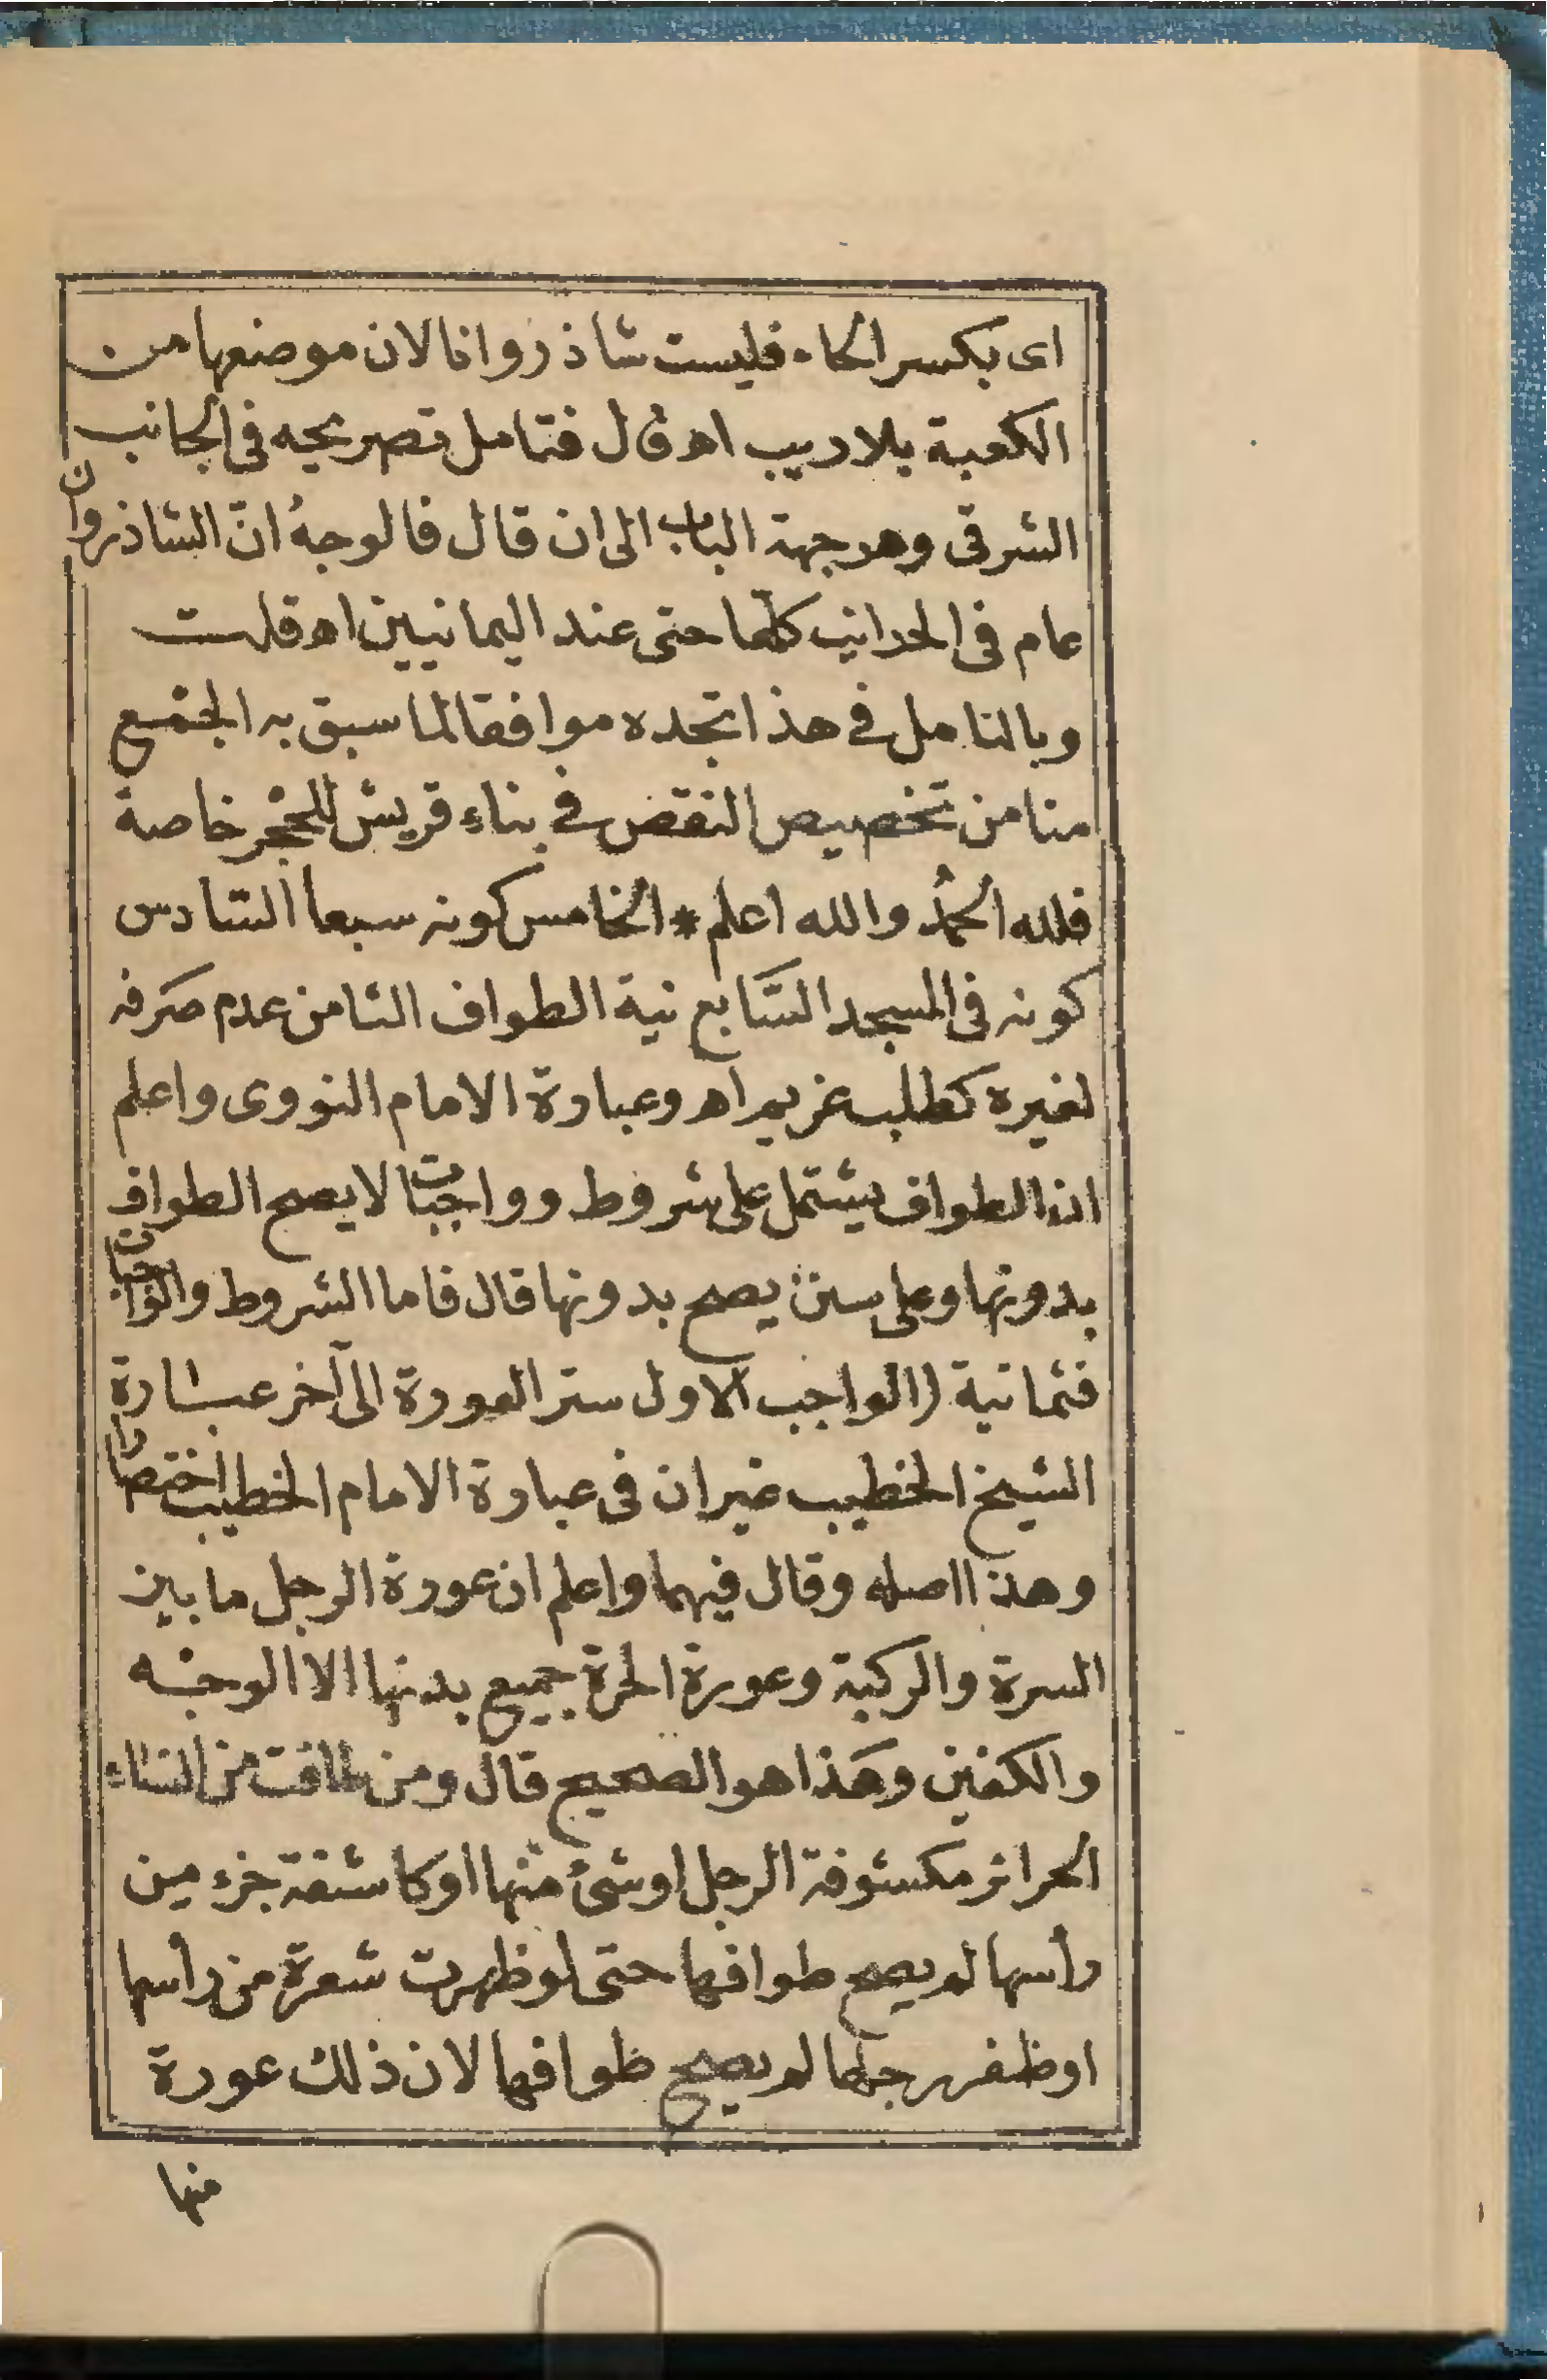 اى بكسر الحاء فليست شاذروانا لان موضعها من
الكعبة بلا ريب اه قال فتامل تصريحه فى الجانب
الشرقى وهو جهة الباب الى ان قال فالوجهُ انّ الشاذروان
عام فى الجوانب كلّها حتى عند اليمانيين اه قلت
وبالتامل فى هذا تجده موافقا لما سبق به الجمع
منا من تخصيص النقض فى بناءِ قريش للحِجْر خاصة
فلله الحمدُ والله اعلم * الخامس كونه سبعا السّادس
كونه فى المسجد السَّابع نية الطواف الثامن عدم صَرفه
لغيره كطلب غريم اه وعبارة الامام النووى واعلم
ان الطواف يشتمل على شروط وواجبات لا يصح الطواف
بدونها وعلى سنن يصح بدونها قال فاما الشروط والواجبات
فثمانية (الواجب الاول ستر العورة الى آخر عبارة
الشيخ الخطيب غير ان فى عبارة الامام الخطيب اختصارا
وهذا اصله وقال فيهما واعلم ان عورة الرجل ما بين
السرة والركبة وعورة الحرة جميع بدنها الا الوجه
والكفين وهَذا هو الصحيح قال ومن طافت من النساء
الحرائر مكشوفة الرجل او شئ منها او كاشفة جزء من
رأسها لم يصح طوافها حتى لو ظهرت شعرة من رأسها
او ظفر رجلها لم يصح طوافها لان ذلك عورة
منها